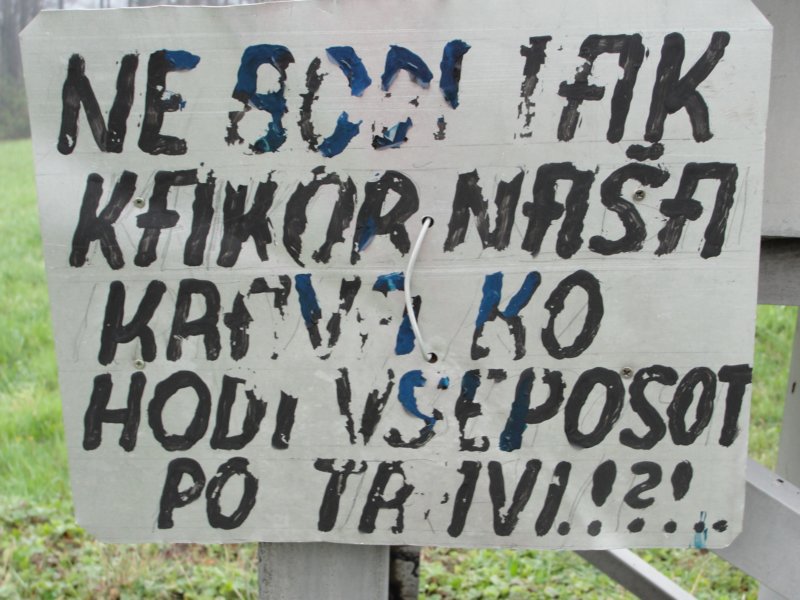 NE BODI TAK
KAKOR NAŠA
KRAVA KO
HODI VSEPOSOT
PO TRAVI.!?!..